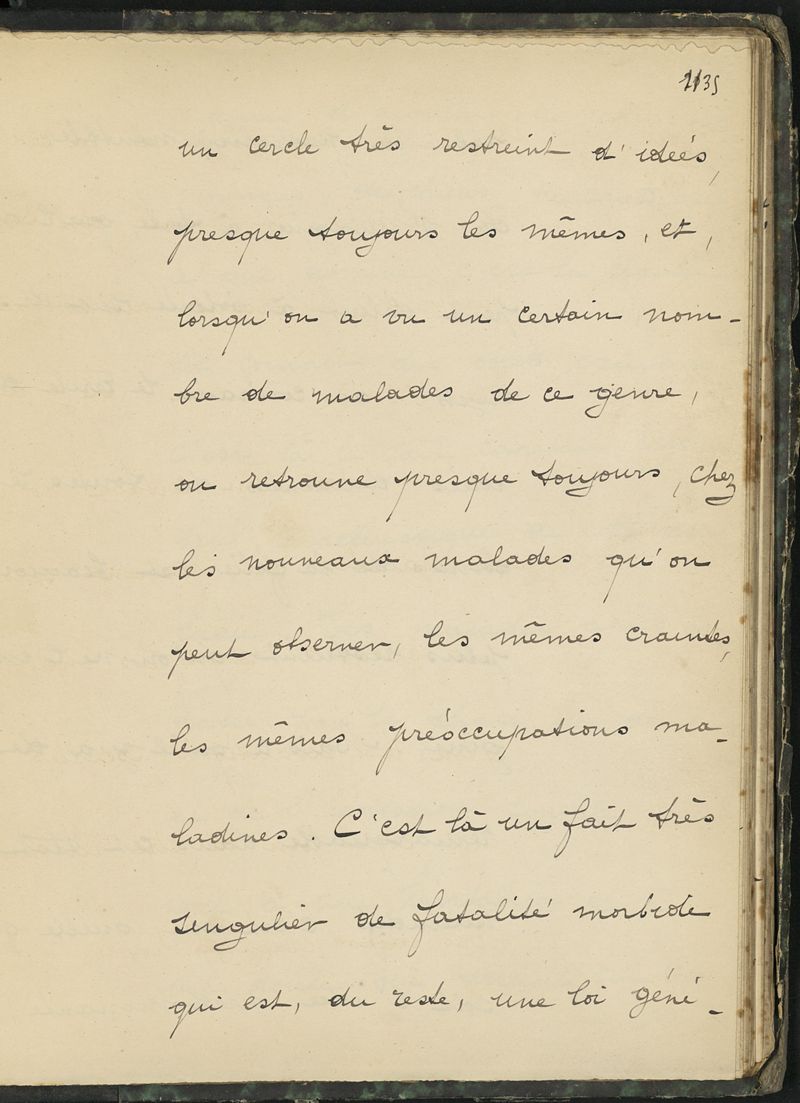 1135
un cercle très restreint d'idées,
presque toujours les mêmes, et,
lorsqu'on a vu un certain nom-
bre de malades de ce genre,
on retrouve presque toujours, chez
les nouveaux malades qu'on
peut observer, les mêmes craintes,
les mêmes préoccupations ma-
ladives. C'est là un fait très
singulier de fatalité morbide
qui est, du reste, une loi géné-